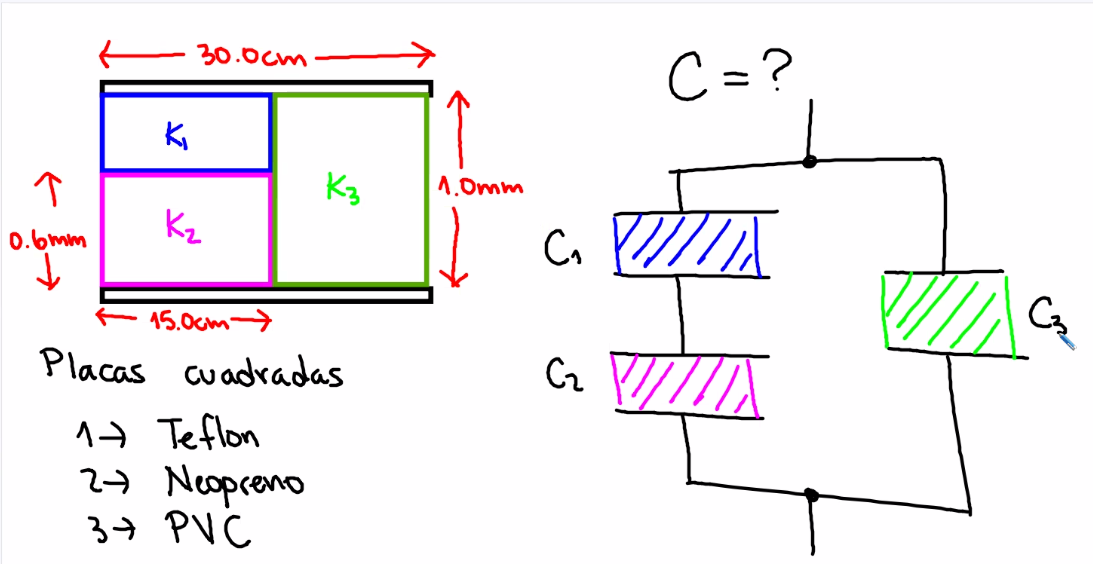 30.0cm
K1
K2
K3
0.6mm
1.0mm
15.0cm
Placas cuadradas
1→ Teflon
2→ Neopreno
3→ PVC
C = ?
C1
C2
C3